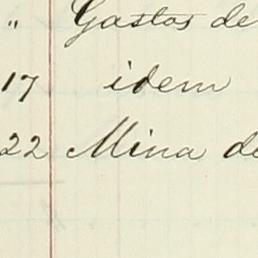 " Gastos de
17 idem
22 Mina de